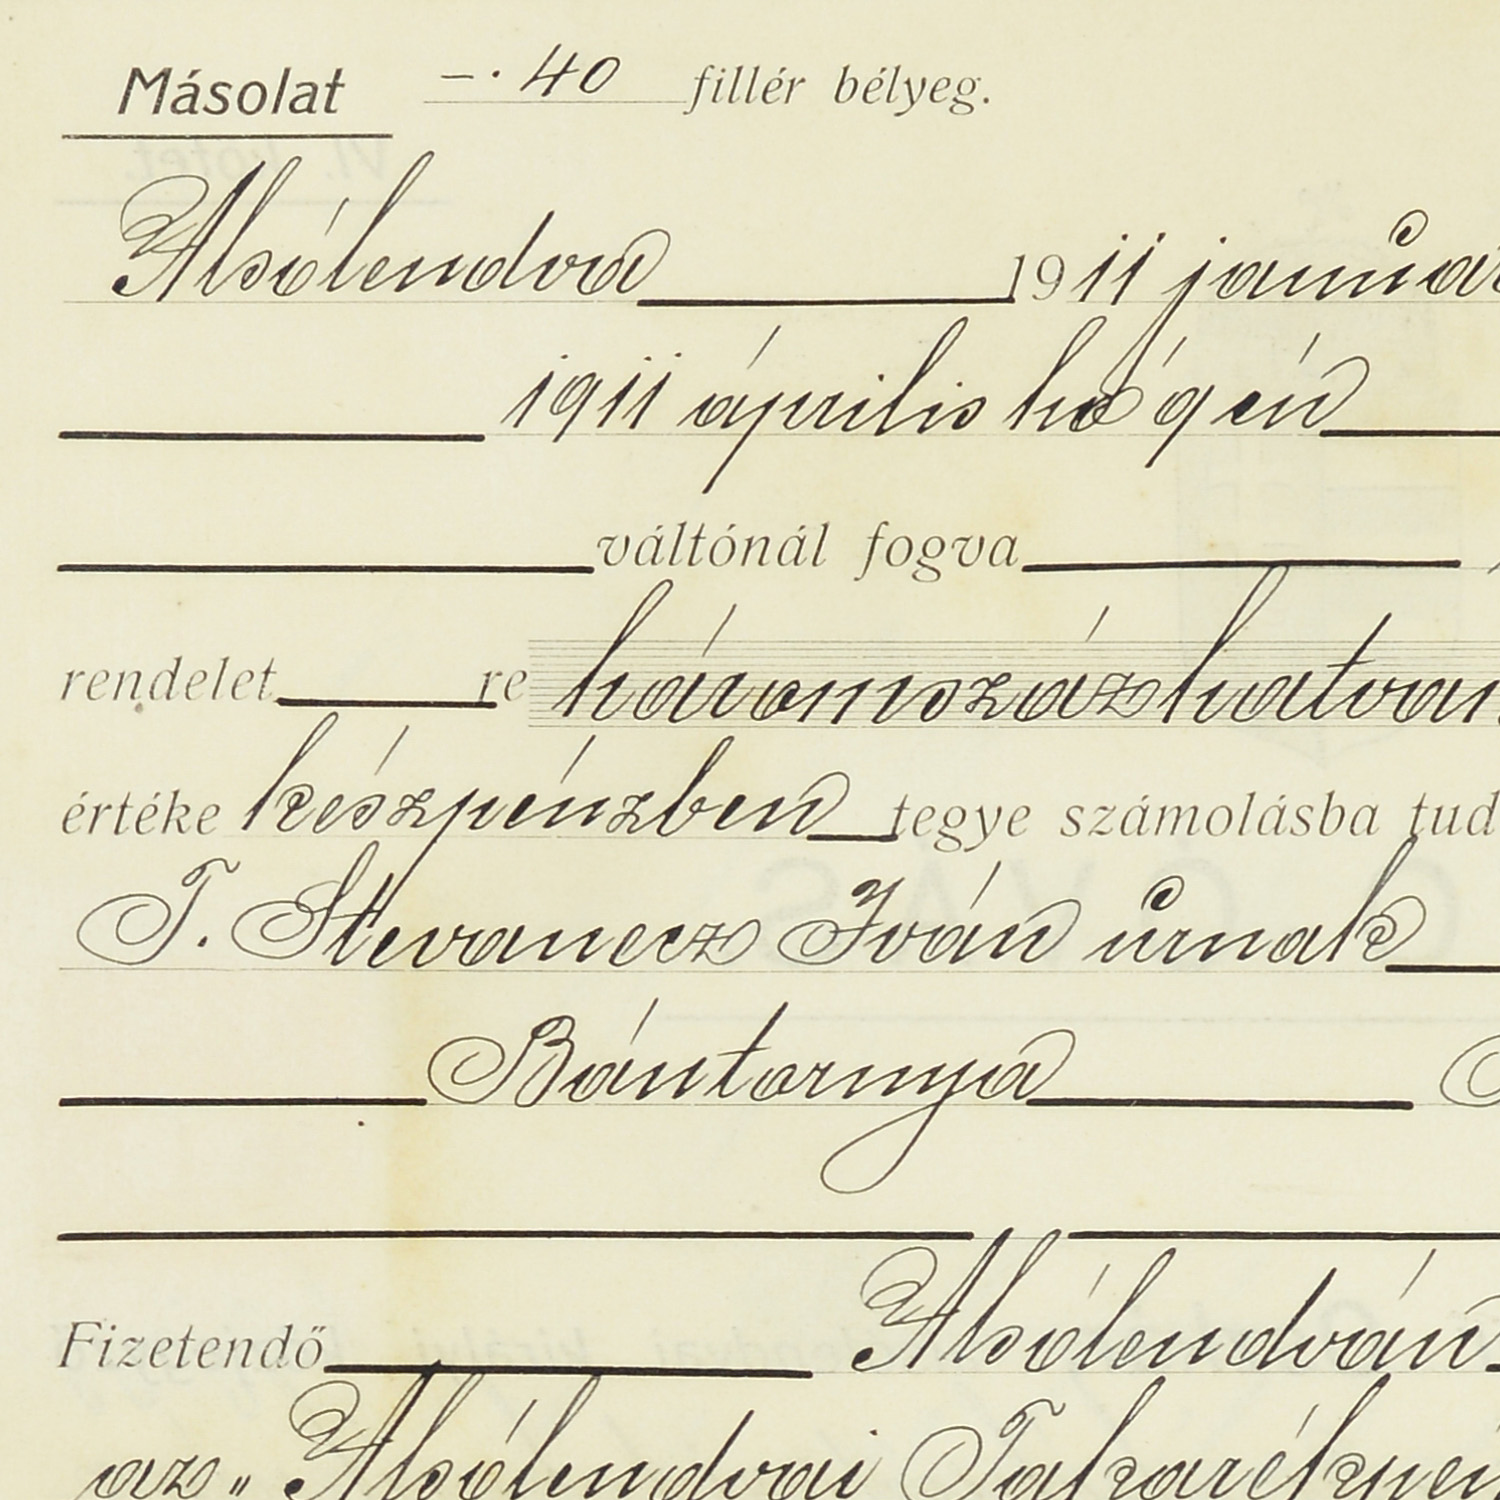 Másolat –.40 fillér bélyeg.
Alsólendva 1911 január
1911 április hó 9 én
váltónál fogva
rendelet re háromszázhatvan
értéke készpénzben tegye számolásba tud
T. Stevanecz Iván úrnak
Bántornya
Fizetendő Alsólendván
az „Alsólendvai Takarékpén